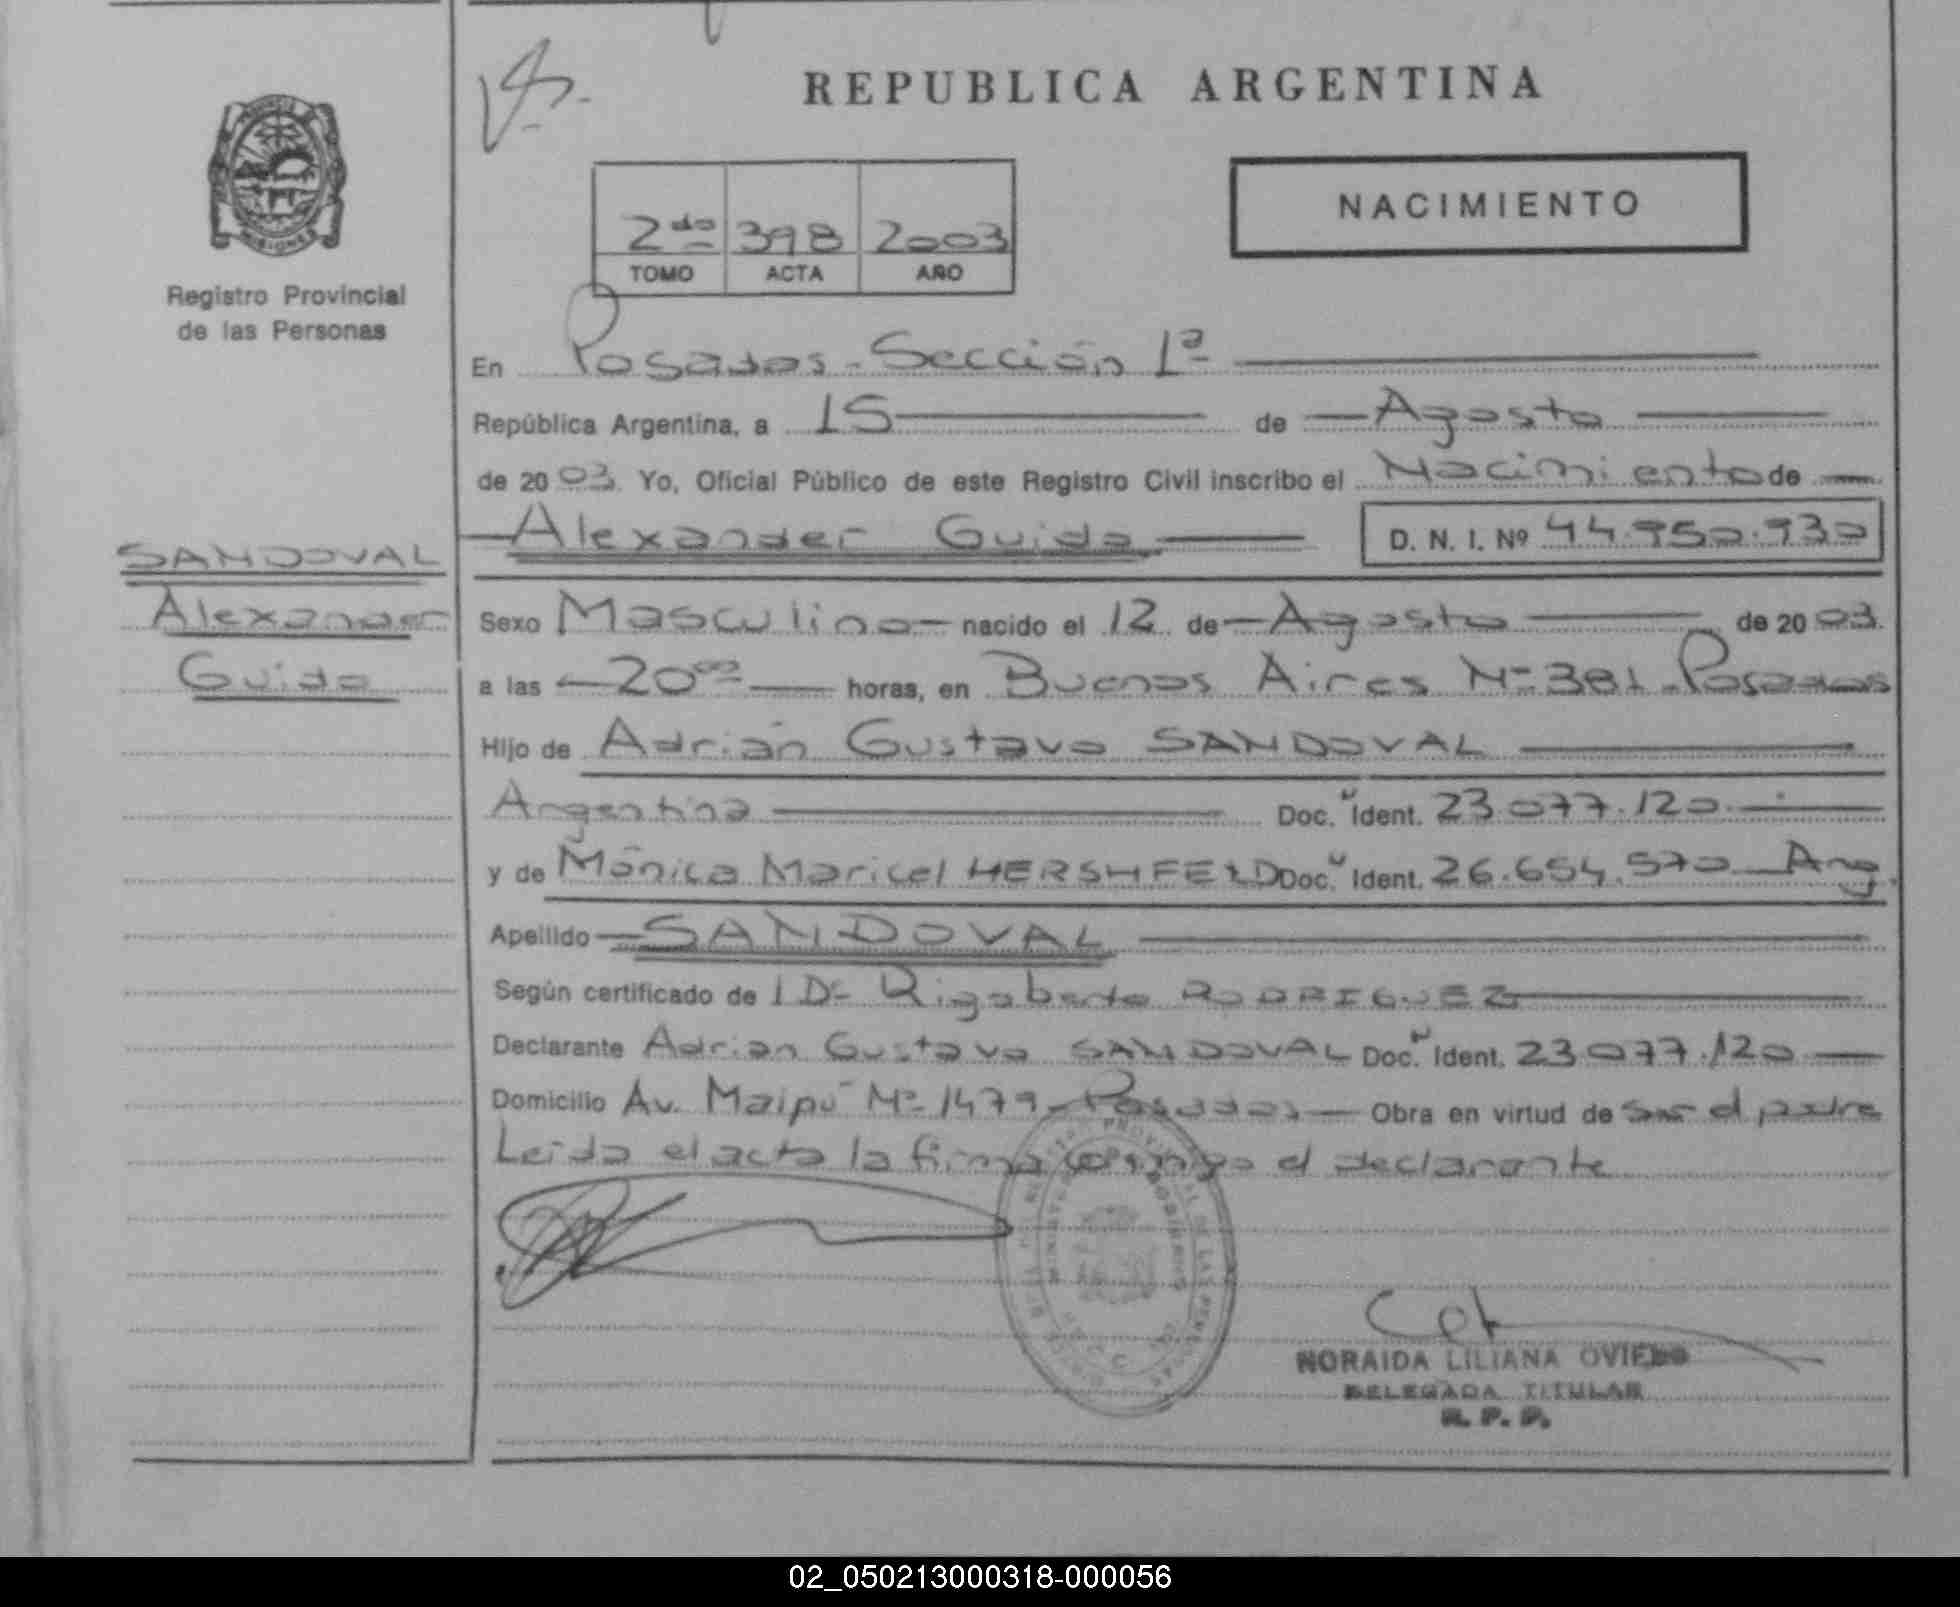 REPUBLICA ARGENTINA
NACIMIENTO
2do 398 2003
TOMO ACTA AÑO
MISIONES
Registro Provincial
de las Personas
En Posadas - Sección 1ª
República Argentina, a 15 de Agosto
de 2003. Yo, Oficial Público de este Registro Civil inscribo el Nacimiento de
Alexander Guido D. N. I. Nº 44.950.930
SANDOVAL
Alexander
Guido
Sexo Masculino nacido el 12 de Agosto de 2003.
a las 20ºº horas, en Buenos Aires Nº 381 - Posadas
Hijo de Adrián Gustavo SANDOVAL
Argentina Doc. Ident. 23.077.120
y de Mónica Maricel HERSHFELD Doc. Ident. 26.654.570 Arg.
Apellido SANDOVAL
Según certificado de Dr Rigoberto RODRIGUEZ
Declarante Adrian Gustavo SANDOVAL Doc. Ident. 23.077.120
Domicilio Av. Maipú Nº 1479 - Posadas Obra en virtud de ser el padre
Leída el acta la firma conmigo el declarante
NORAIDA LILIANA OVIEDO
DELEGADA TITULAR
R. P. P.
02_050213000318-000056